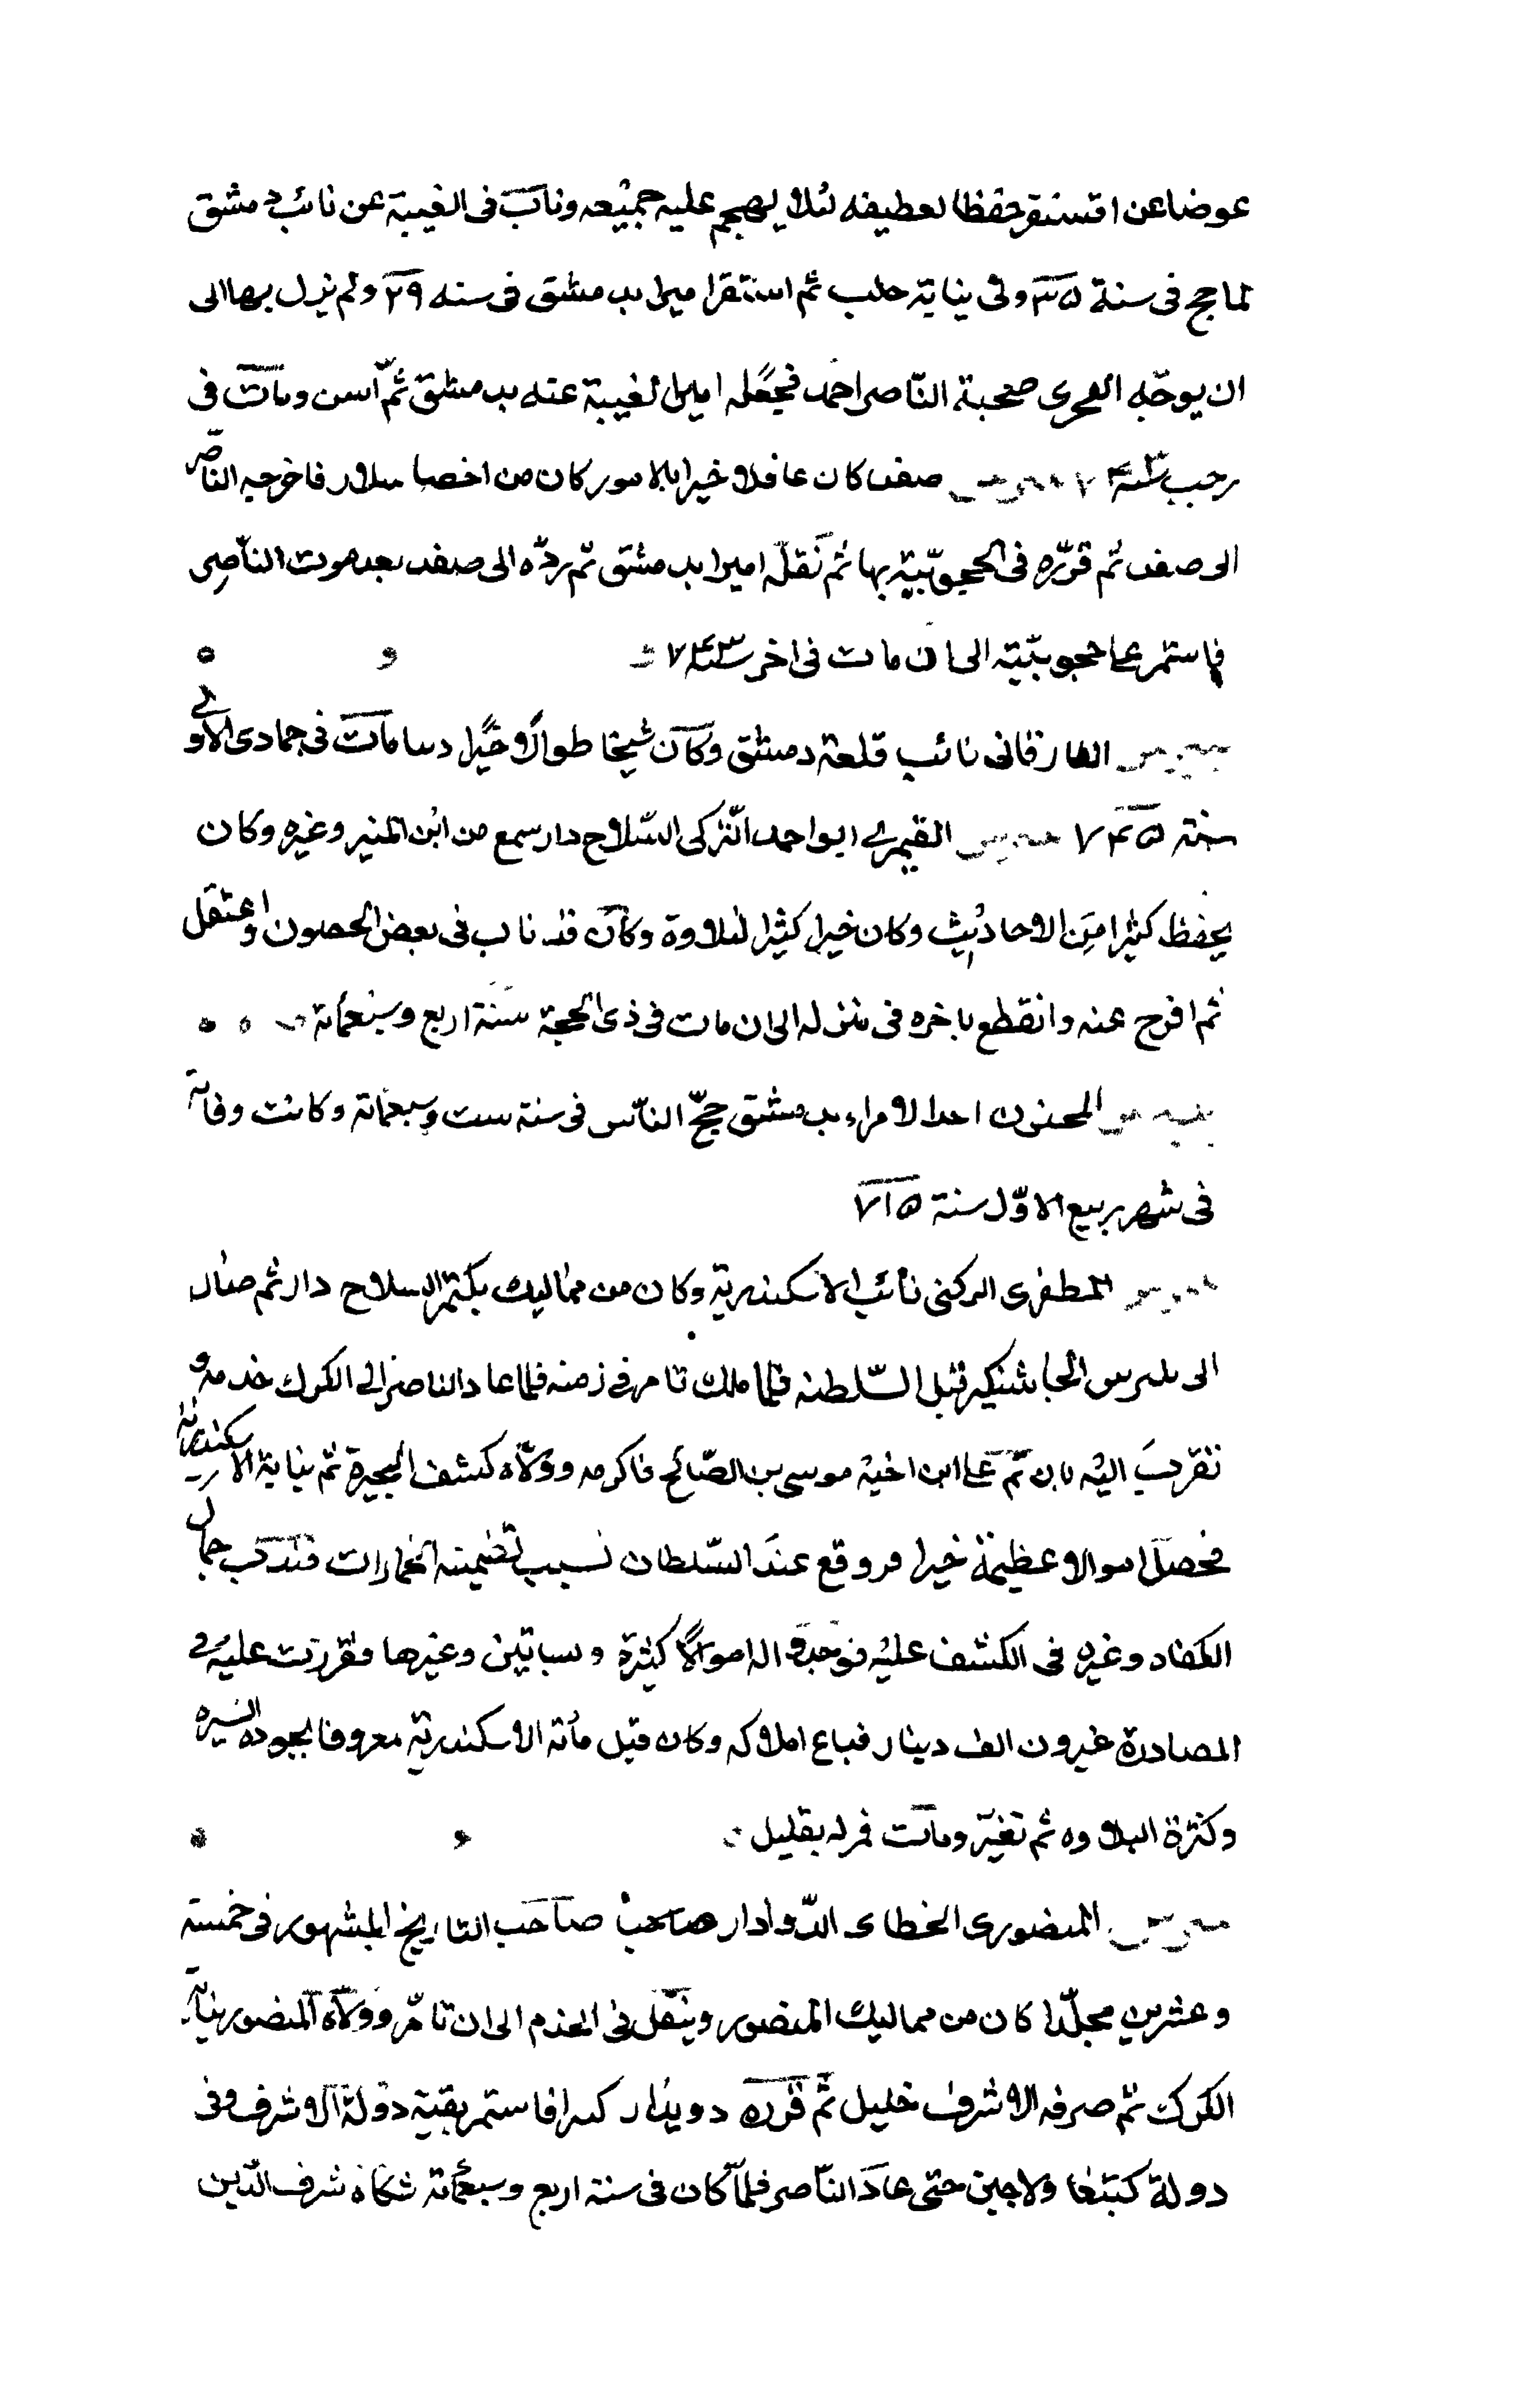 عوضا عن اقسنقر حفظا لعطيفه لئلا يهجم عليه جميعه وناب فى الغيبة عن نائب دمشق
لما حج فى سنة ٣٥ وفى نيابة حلب ثم استقر اميرا بدمشق فى سنه ٢٩ ولم يزل بها الى
ان يوجّه الفخرى صحبة النّاصر احمد فجعله امير الغيبة عنه بدمشق ثمّ اسن ومات فى
رجب سنة ٧٤٣ صفد كان عاقلا خيرا بالامور كان من اخصا سلار فاخرجه الناصر
الى صفد ثم قرّره فى الحجوبيّة بها ثم نقله اميرا بدمشق ثم ردّه الى صفد بعد موت النّاصر
فاستمر على حجوبيّته الى ان مات فى اخر سنة ٧٤٣
بيبرس الفارقانى نائب قلعة دمشق وكان شيخا طوالا خيّرا دسا مات فى جمادى الاولى
سنة ٧٤٥ القيمرى ابو احمد التّركى السّلاح دار سمع من ابن المنير وغيره وكان
يحفظ كثيرا من الاحاديث وكان خيرا كثير التلاوة وكان قد ناب فى بعض الحصون واعتقل
ثم افرج عنه وانقطع باخره فى منزله الى ان مات فى ذى الحجة سنة اربع وسبعمائة
بيبرس المجنون احد الامراء بدمشق حجّ النّاس فى سنة ست وسبعمائة وكانت وفاته
فى شهر ربيع الاوّل سنة ٧١٥
المظفرى الركنى نائب الاسكندرية وكان من مماليك بكتمر السلاح دار ثم صار
الى بيبرس الجاشنكير قبل السّلطنه فلما ملك تامر فى زمنه فلما عاد الناصر الى الكرك خدمه و
تقرب اليه بان نمّ على ابن اخيه موسى بن الصّالح فاكرمه وولّاه كشف البحيرة ثم نيابة الاسكندرية
فحصل اموالا عظيمة خيرا وقع عند السّلطان بسبب تضمينه الخمارات فندب جمال
الكفاد وغيره فى الكشف عليه فوجدوا له اموالا كثيرة وبساتين وغيرها وقررت عليه فى
المصادرة الف دينار فباع املاكه وكان قبل الاسكندرية معروفا بجودة السيره
وكثرة التلاوه ثم تغيّر ومات بقليل
بيبرس المنصورى الخطاى الدّوادار صاحب صاحب التاريخ المشهور فى خمسة
وعشرين مجلّدا كان من مماليك المنصور وينقل فى الخدم الى ان تامّر وولاه المنصور نيابة
الكرك ثم صرفه الاشرف خليل ثم قرره دويدار كبيرا فاستمر بقية دولة الاشرف وفى
دولة كتبغا ولاجين حتى عاد النّاصر فلمّا كان فى سنة اربع وسبعمائة شكاه شرف الدّين